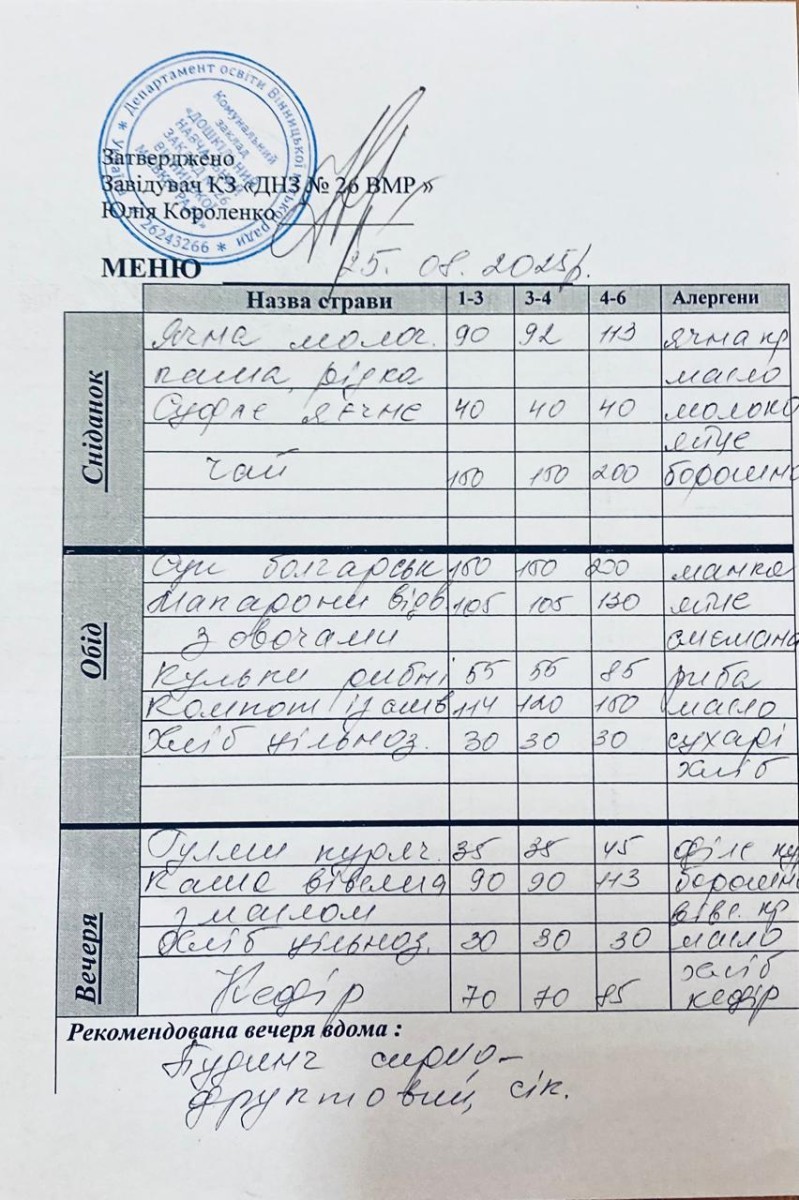 Департамент освіти Вінницької міської ради * Україна *
Комунальний
заклад
«ДОШКІЛЬНИЙ
НАВЧАЛЬНИЙ
ЗАКЛАД № 26
26243266
Затверджено
Завідувач КЗ «ДНЗ № 26 ВМР »
Юлія Короленко
МЕНЮ 25. 08. 2025р.
Назва страви 1-3 3-4 4-6 Алергени
Сніданок
Ячна молоч. 90 92 113 ячна кр
каша, рідка масло
Суфле яєчне 40 40 40 молоко
яйце
чай 150 150 200 борошно
Обід
Суп болгарськ 150 150 200 манка
Макарони відв 105 105 130 яйце
з овочами сметана
Кульки рибні 55 55 85 риба
Компот із 114 120 150 масло
Хліб цільноз. 30 30 30 сухарі
хліб
Вечеря
куряч. 35 35 45 філе ку
Каша вівсяна 90 90 113 борошно
з маслом вівс. кр
Хліб цільноз. 30 30 30 масло
хліб
Кефір 70 70 85 кефір
Рекомендована вечеря вдома :
Пудинг сирно-
фруктовий, сік.